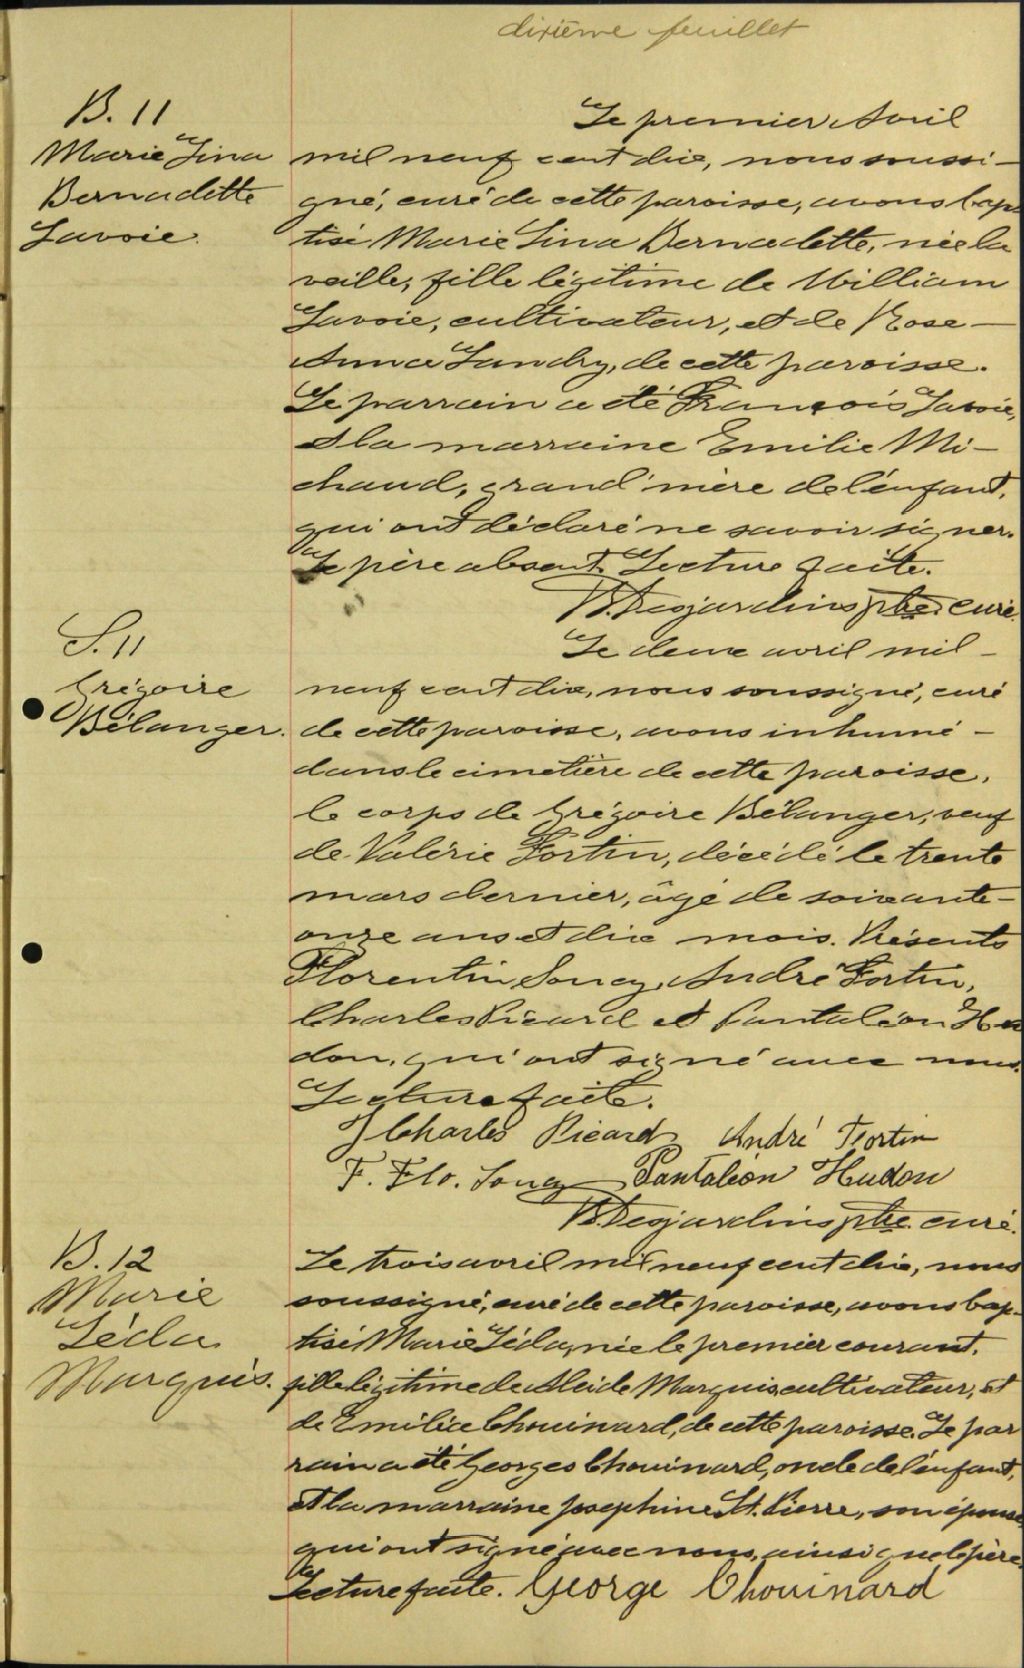 dixième feuillet
B. 11
Marie Lina
Bernadette
Savoie.
Le premier Avril
mil neuf cent dix, nous soussi-
gné, curé de cette paroisse, avons bap
tisé Marie Lina Bernadette, née la
veille, fille légitime de William
Savoie, cultivateur, et de Rose-
Anna Landry, de cette paroisse.
Le parrain a été François Savoie,
et la marraine Emilie Mi-
chaud, grand'mère de l'enfant,
qui ont déclaré ne savoir signer.
Le père absent. Lecture faite.
Desjardins ptre curé.
S. 11
Grégoire
Bélanger.
Le deux avril mil-
neuf cent dix, nous soussigné, curé
de cette paroisse, avons inhumé-
dans le cimetière de cette paroisse,
le corps de Grégoire Bélanger, veuf
de Valérie Fortin, décédé le trente
mars dernier, âgé de soixante-
onze ans et dix mois. Présents
Florentin Soucy, André Fortin,
Charles Picard et Pantaléon Hu
don, qui ont signé avec nous.
Lecture faite.
J Charles Picard André Fortin
F. Flo. Soucy Pantaléon Hudon
Desjardins ptre. curé.
B. 12
Marie
Léda
Marquis.
Le trois avril mil neuf cent dix, nous
soussigné, curé de cette paroisse, avons bap-
tisé Marie Léda, née le premier courant,
fille légitime de Alcide Marquis, cultivateur, et
de Emilie Chouinard, de cette paroisse. Le par
rain a été Georges Chouinard, oncle de l'enfant,
et la marraine Josephine St. Pierre, son épouse,
qui ont signé avec nous, ainsi que le père.
Lecture faite. George Chouinard